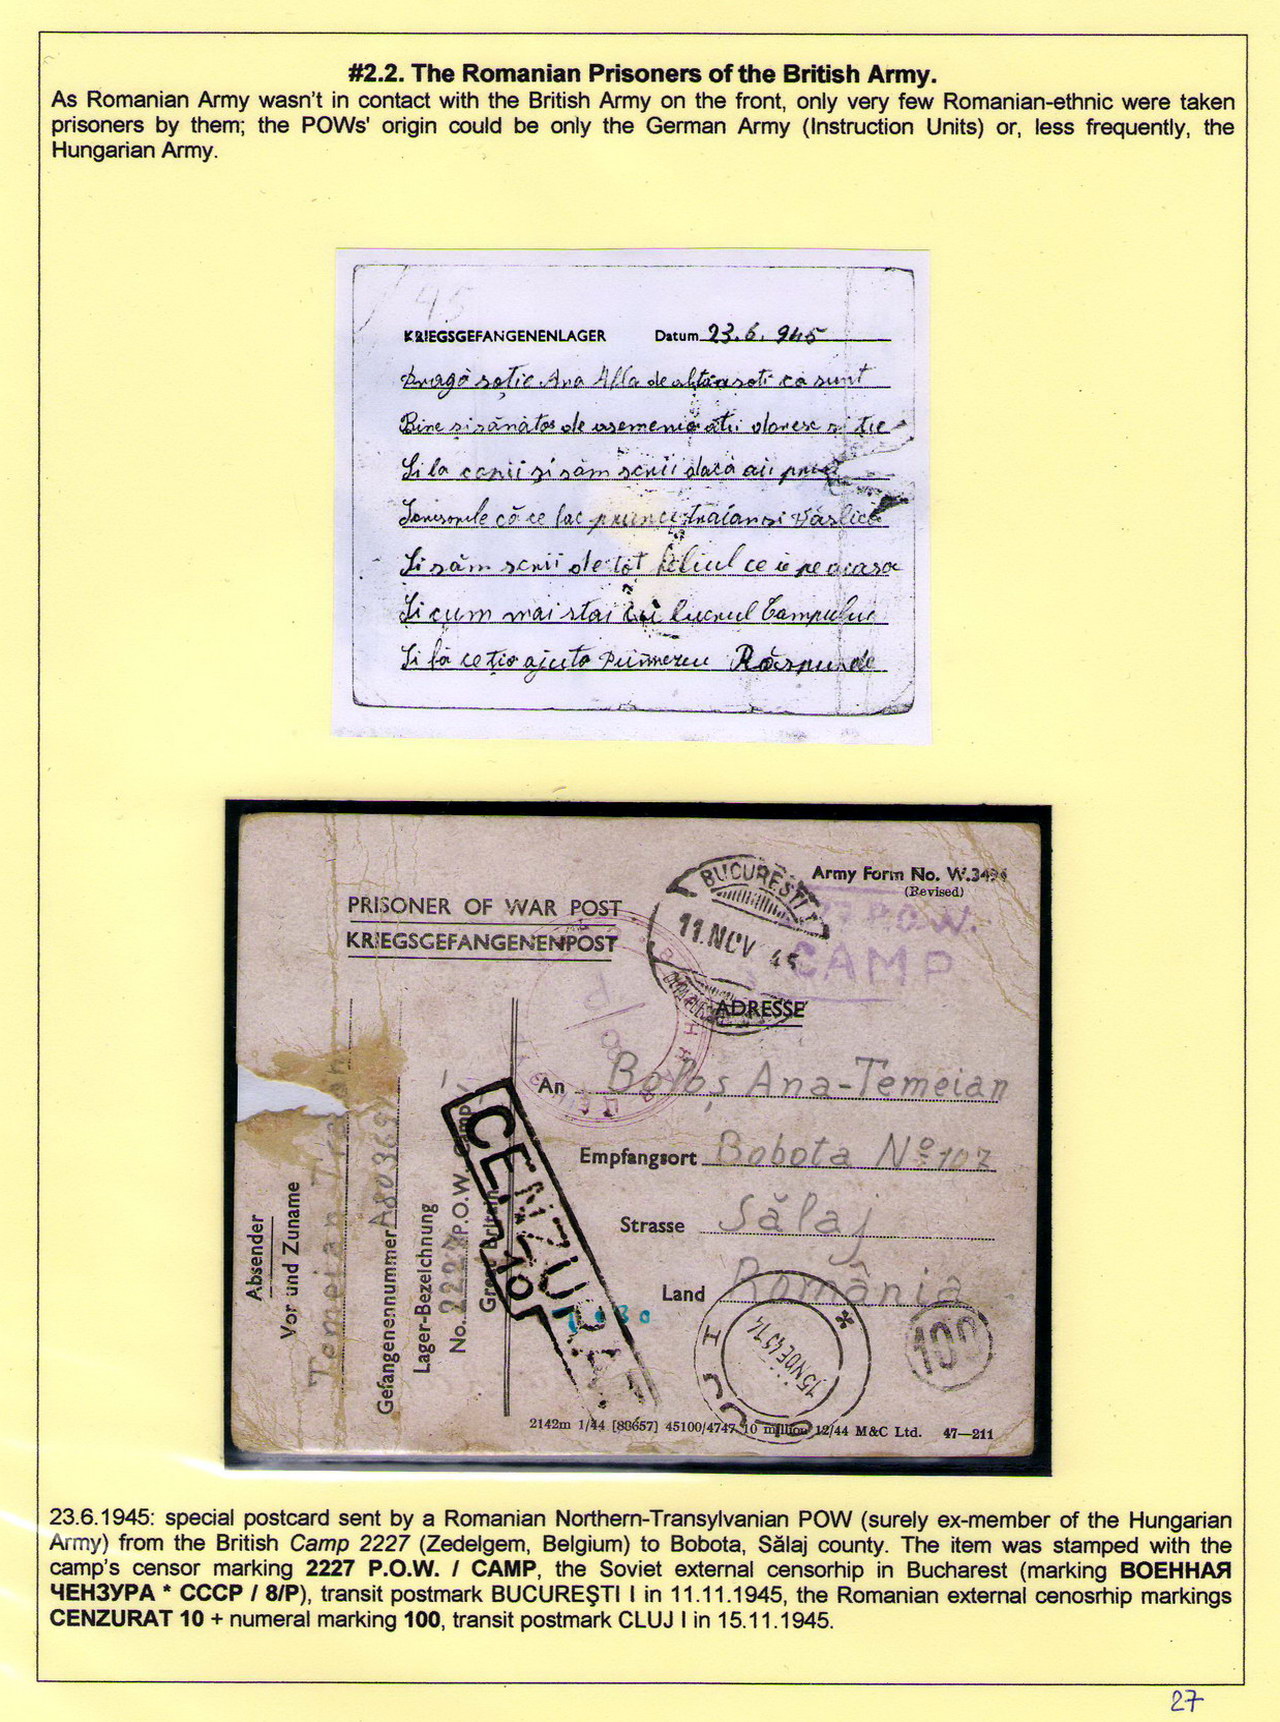 #2.2. The Romanian Prisoners of the British Army.
As Romanian Army wasn't in contact with the British Army on the front, only very few Romanian-ethnic were taken
prisoners by them; the POWs' origin could be only the German Army (Instruction Units) or, less frequently, the
Hungarian Army.
45
KRIEGSGEFANGENENLAGER Datum 23.6.945
Dragă soție Ana Afla de că sunt
Bine și sănătos de asemenea doresc și ție
Și la copii și săm scrii dacă aii
Scrisorile că ce fac prunci Traian și Văslica
Și săm scrii de tot feliul ce e pe acasa
Și cum mai stai cu lucrul Campului
Și la ce tio ajuta Dumnezeu Răspunde
PRISONER OF WAR POST
KRIEGSGEFANGENENPOST
Army Form No. W.3494
(Revised)
P.O.W.
CAMP
BUCUREȘTI I
11.NOV 45
ADRESSE
An Boloș Ana-Temeian
Empfangsort Bobota No 107
Strasse Sălaj
Land România
Absender
Vor und Zuname
Temeian Traian
Gefangenennummer A803694
Lager-Bezeichnung
No. 2227 P.O.W. Camp
Great Britain
CENZURAT
10
CLUJ I
15NOE4514
100
2142m 1/44 [88657] 45100/4747 10 million 12/44 M&C Ltd. 47—211
23.6.1945: special postcard sent by a Romanian Northern-Transylvanian POW (surely ex-member of the Hungarian
Army) from the British Camp 2227 (Zedelgem, Belgium) to Bobota, Sălaj county. The item was stamped with the
camp's censor marking 2227 P.O.W. / CAMP, the Soviet external censorhip in Bucharest (marking ВОЕННАЯ
ЧЕНЗУРА * СССР / 8/P), transit postmark BUCUREŞTI I in 11.11.1945, the Romanian external cenosrhip markings
CENZURAT 10 + numeral marking 100, transit postmark CLUJ I in 15.11.1945.
27